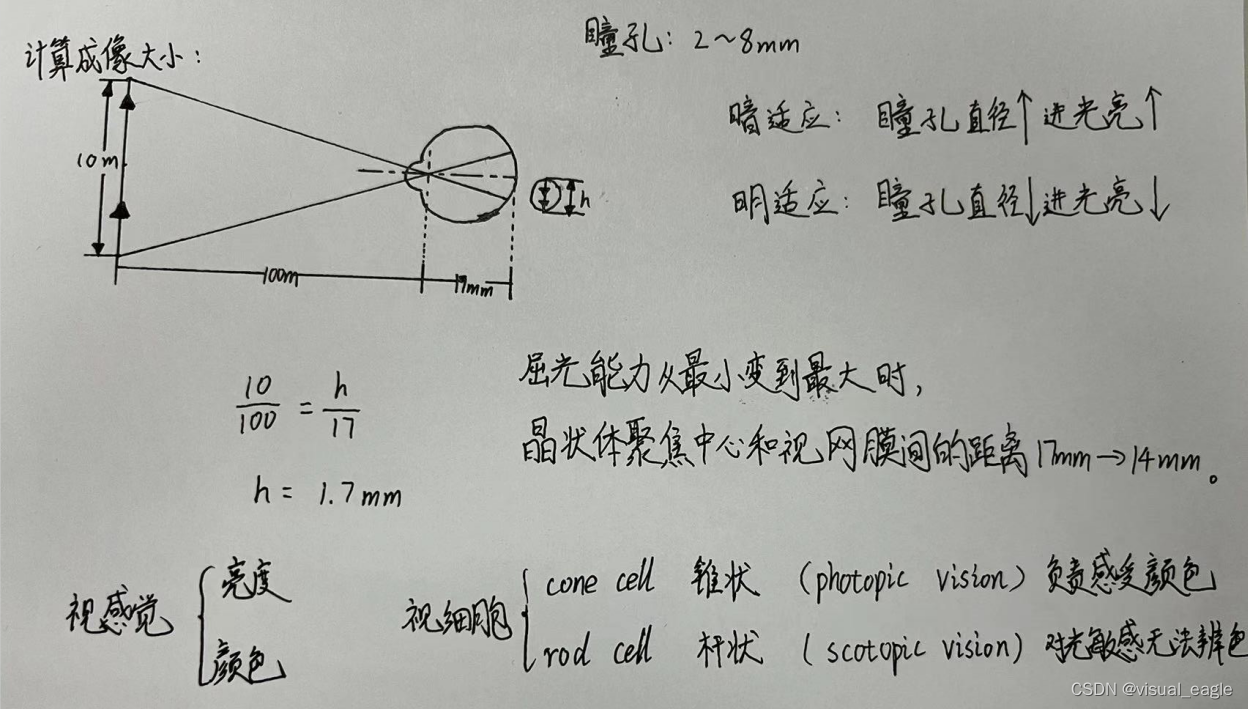 计算成像大小:
瞳孔: 2~8mm
暗适应: 瞳孔直径↑进光亮↑
明适应: 瞳孔直径↓进光亮↓
10m
h
100m
17mm
10/100 = h/17
h = 1.7mm
屈光能力从最小变到最大时,
晶状体聚焦中心和视网膜间的距离17mm→14mm。
视感觉 { 亮度
颜色
视细胞 { cone cell 锥状 (photopic vision) 负责感受颜色
rod cell 杆状 (scotopic vision) 对光敏感无法辨色
CSDN @visual_eagle